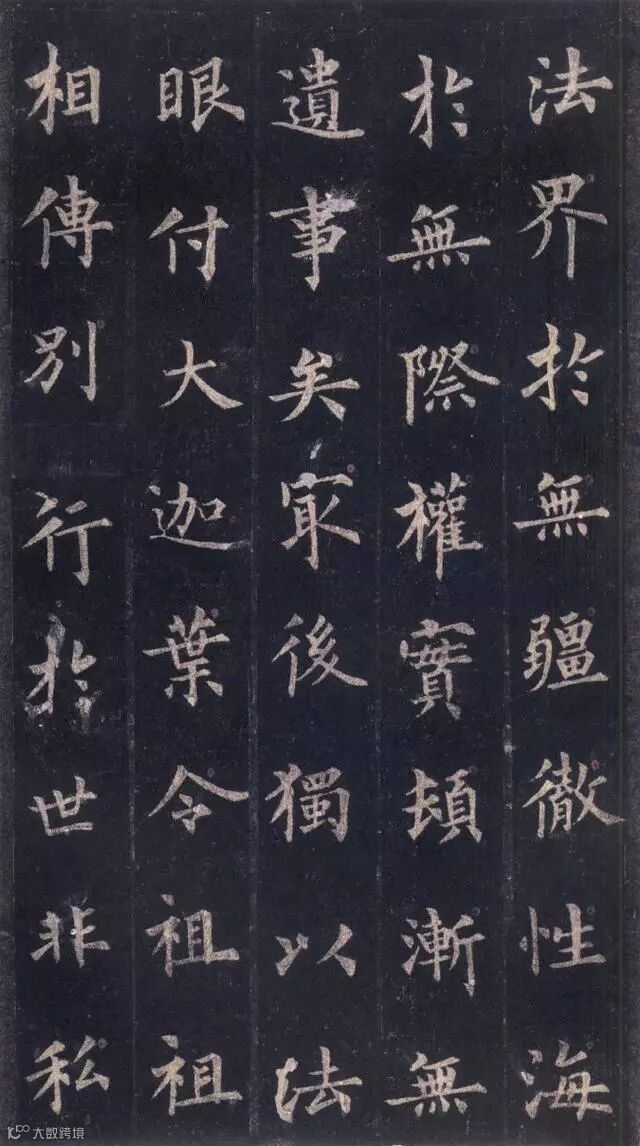 法界於無疆徹性海
於無際權實頓漸無
遺事矣冣後獨以法
眼付大迦葉令祖祖
相傳別行於世非私
大数跨境